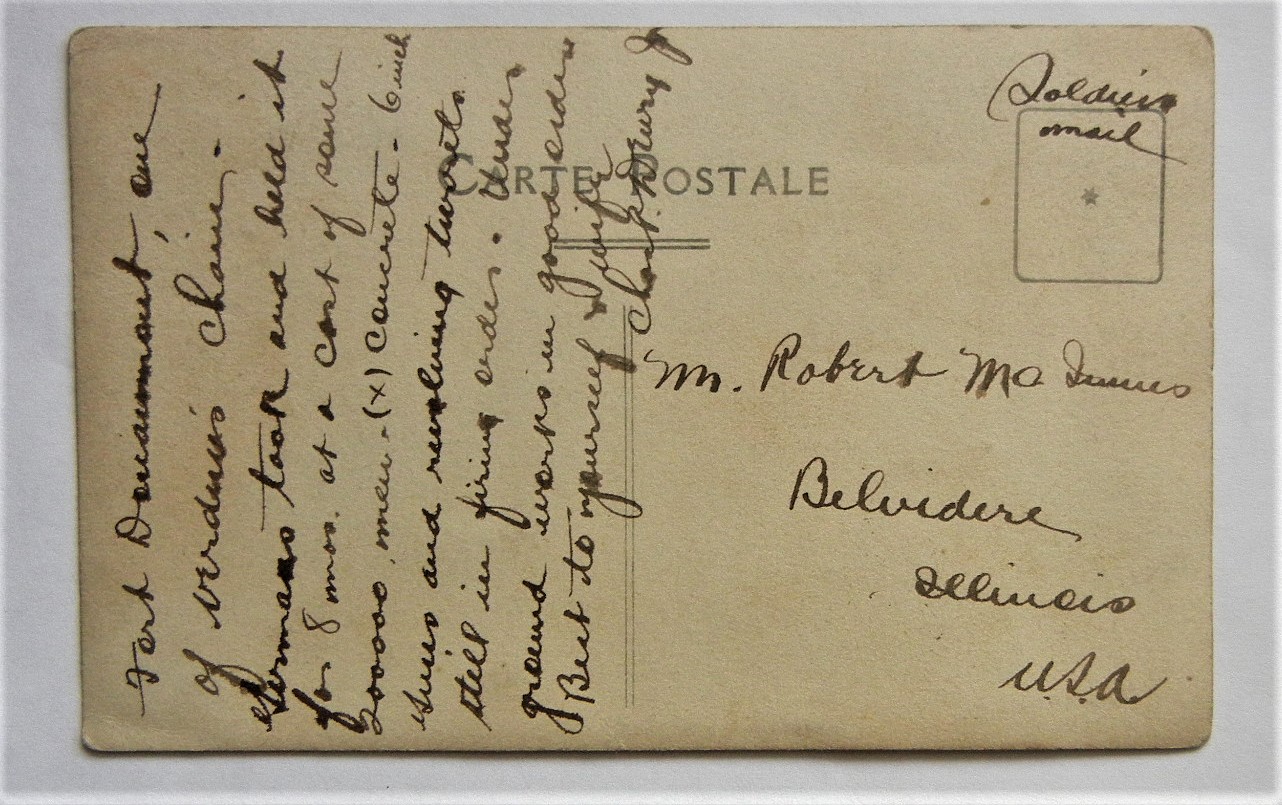 CARTE POSTALE
Soldiers
mail
Fort Douaumont, one
of Verduns chain.
Germans took and held it
for 8 mos. at a cost of some
20000, men. (x) concrete - 6 inch
guns and revolving turrets
still in firing order. Under
ground works in good order
Best to yourself & wife
Chas. Dewry Jr
Mr. Robert McInnes
Belvidere
Illinois
U.S.A